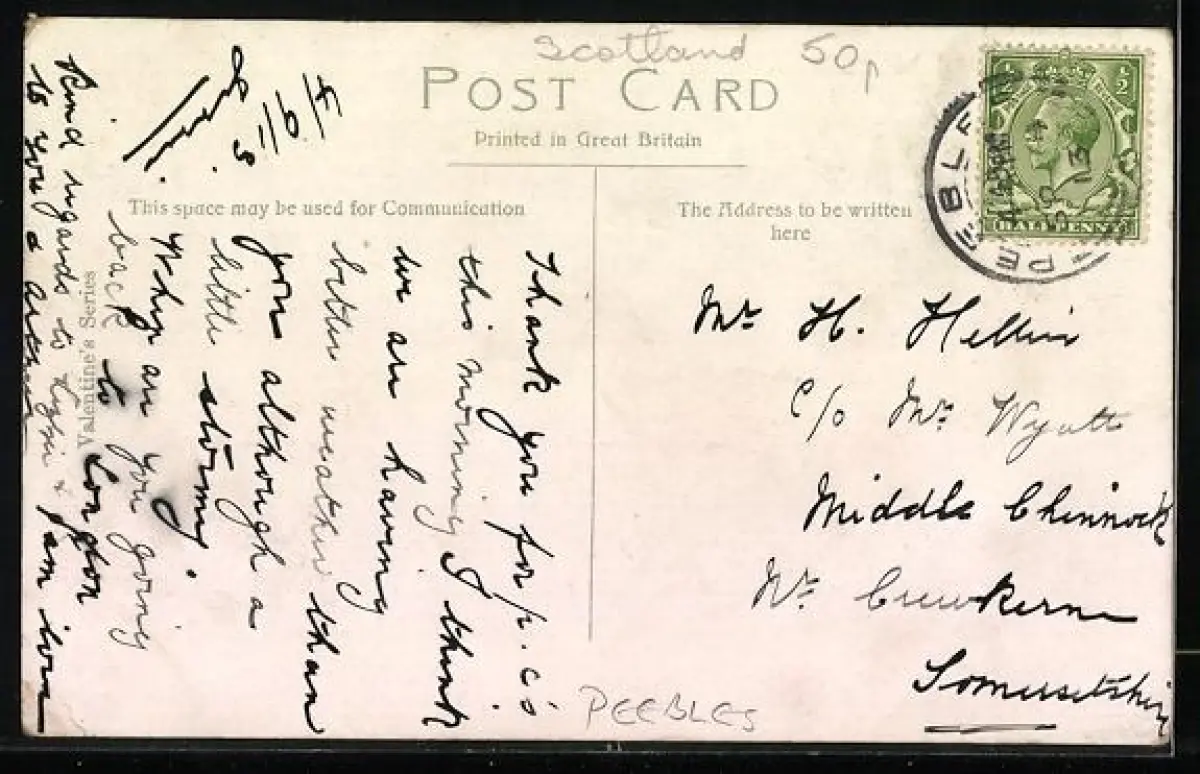 Scotland 50p
POST CARD
Printed in Great Britain
This space may be used for Communication
The Address to be written
here
Valentine's Series
½ ½
HALFPENNY
PEEBLES
4 SP
13
4/9
Thank you for p.c's
this morning I think
we are having
better weather than
you although a
little stormy.
Why are you going
back to London
Kind regards to &
to you
Mr H. Hellier
C/o Mr Wyatt
Middle Chinnock
Nr Crewkerne
Somersetshire
PEEBLES